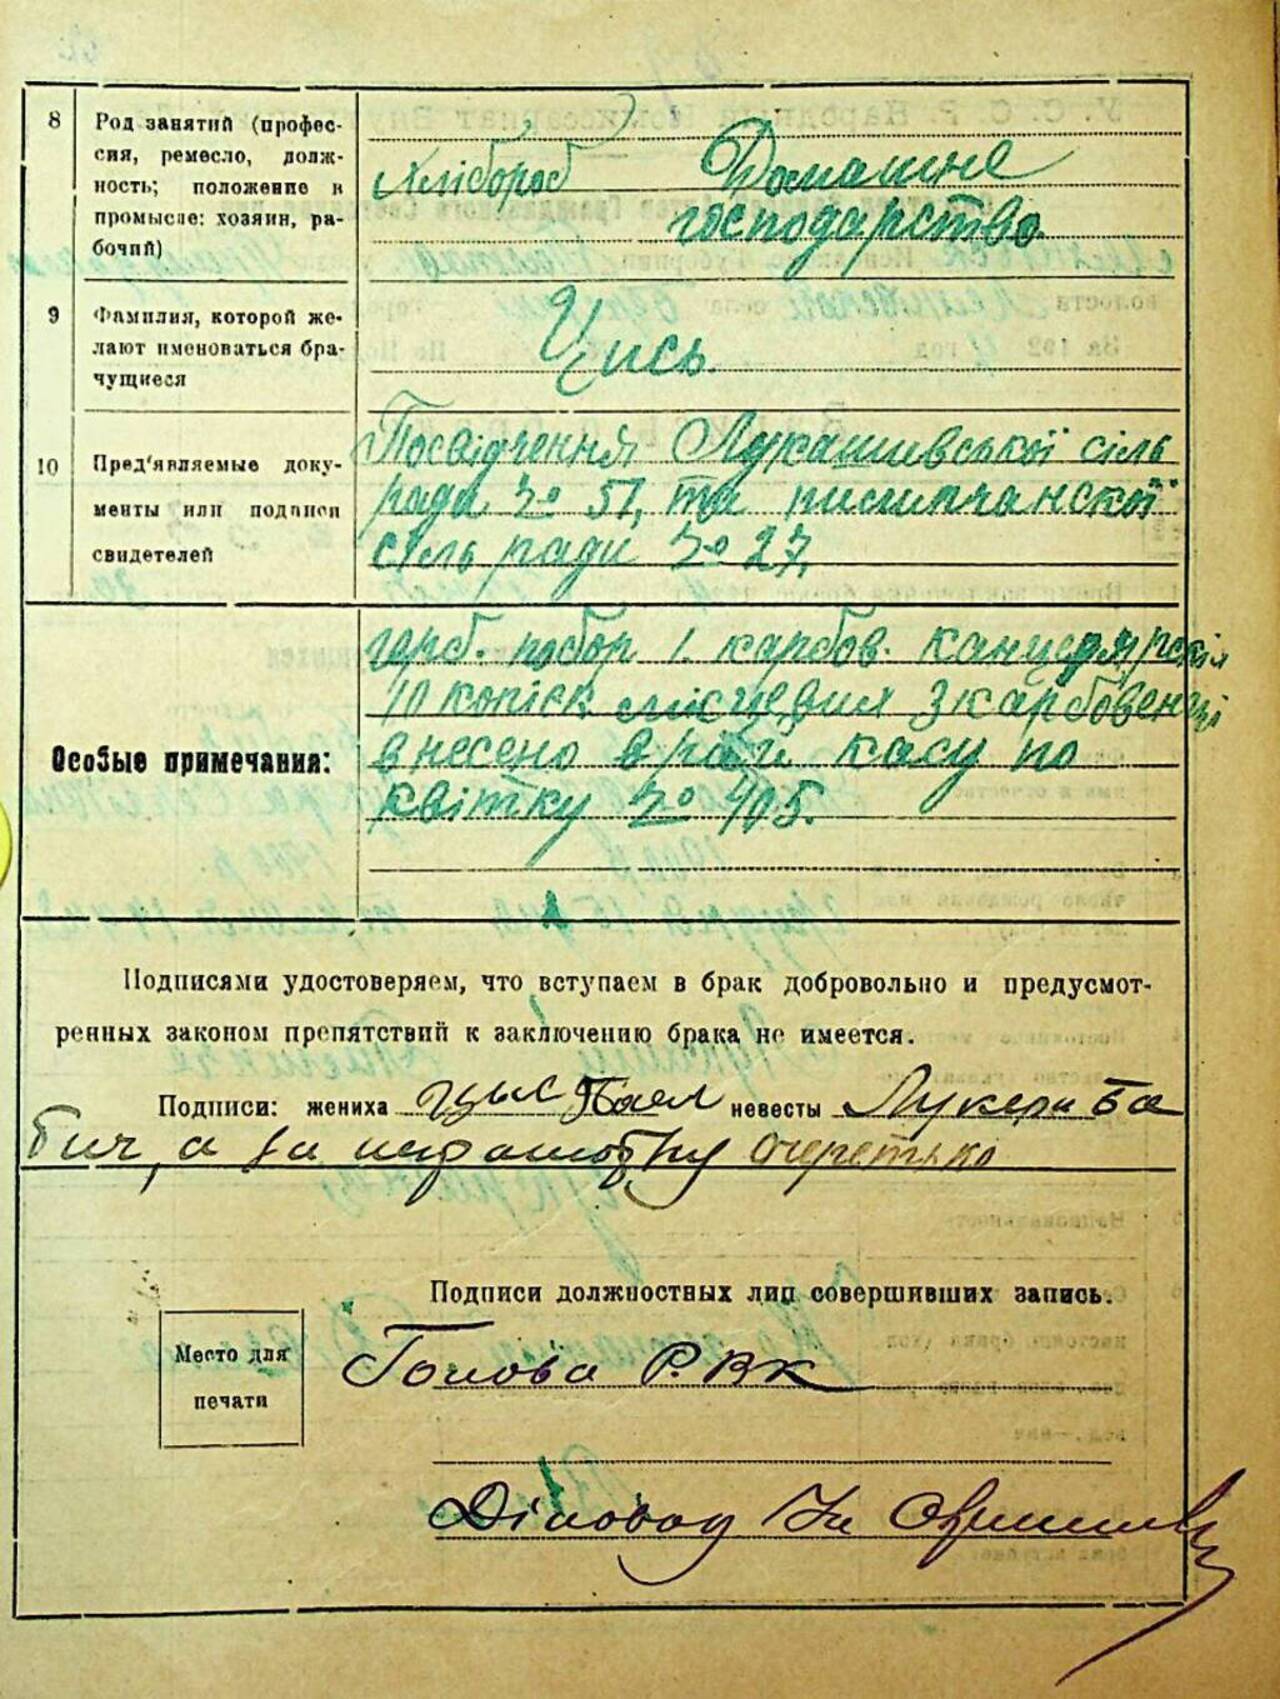 8
Род занятий (профес-
сия, ремесло, долж-
ность; положение в
промысле: хозяин, ра-
бочий)
Хлібороб
Домашне
господарство
9
Фамилия, которой же-
лают именоваться бра-
чущиеся
Цись.
10
Пред'являемые доку-
менты или подписи
свидетелей
Посвідчення Лукашивської сіль
ради № 51, та
сіль ради № 27,
Особые примечания:
герб. побор 1. карбов. канцелярский
10 копієк місцевий 3 карбовенці
внесено в рай касу по
квітку № 405.
Подписями удостоверяем, что вступаем в брак добровольно и предусмот-
ренных законом препятствий к заключению брака не имеется.
Подписи: жениха Цыс невесты Лукери Ба
бич, а за неграмотну Очеретько
Подписи должностных лиц совершивших запись.
Место для
печати
Голова Р.В.К
Діловод